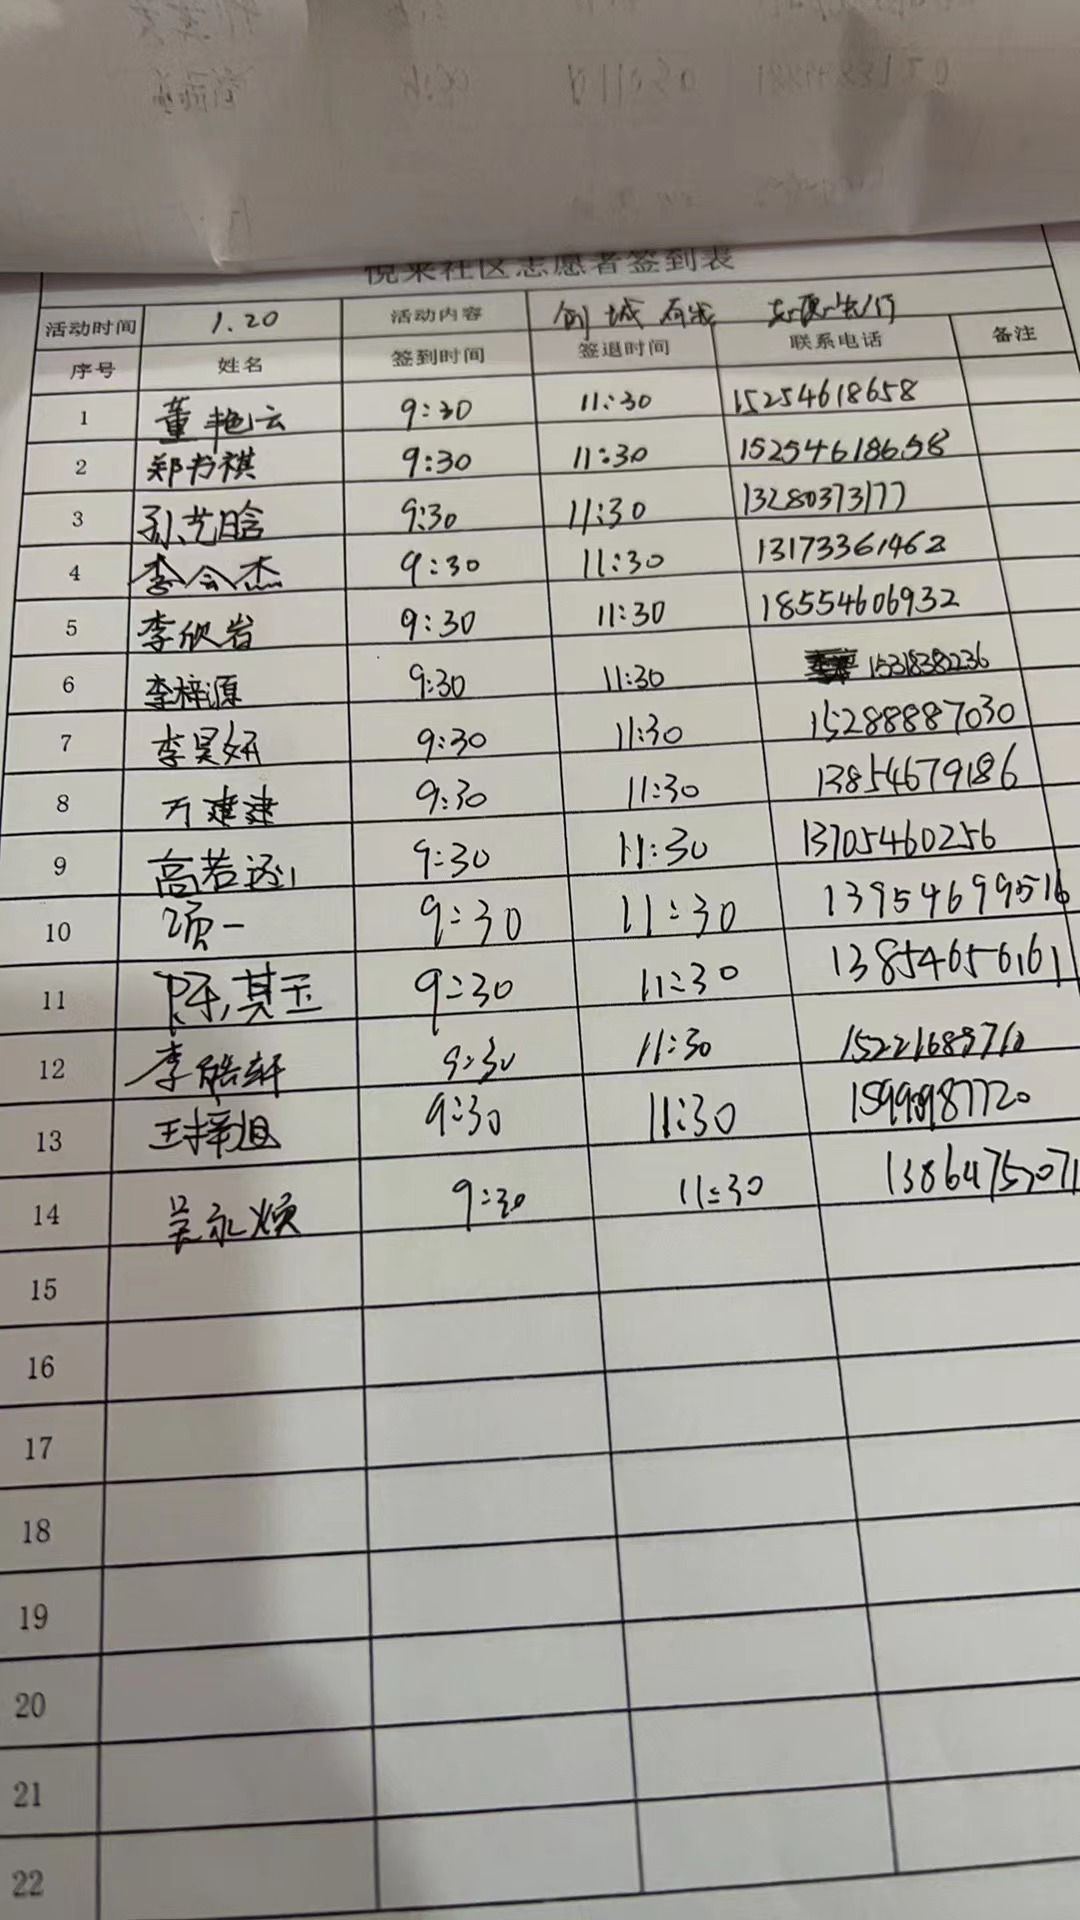 悦来社区志愿者签到表
活动时间 1.20 活动内容 创城有我 志愿先行
序号 姓名 签到时间 签退时间 联系电话 备注
1 董艳云 9:30 11:30 15254618658
2 郑书祺 9:30 11:30 15254618658
3 孙艺晗 9:30 11:30 13280373177
4 李会杰 9:30 11:30 13173361462
5 李欣岩 9:30 11:30 18554606932
6 李梓源 9:30 11:30 15318382236
7 李昊妍 9:30 11:30 15288887030
8 万建建 9:30 11:30 13854679186
9 高若 9:30 11:30 13705460256
10 项一 9:30 11:30 13954699516
11 陈其玉 9:30 11:30 13854656161
12 李皓轩 9:30 11:30
13 王梓旭 9:30 11:30
14 吴永焕 9:30 11:30
15
16
17
18
19
20
21
22